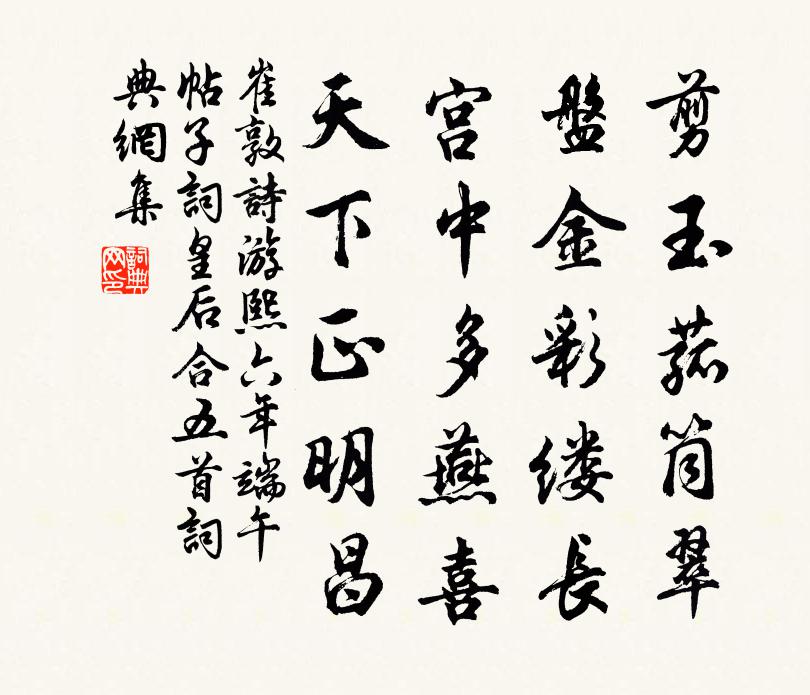 剪玉菰筒翠
盤金彩缕長
宫中多燕喜
天下正明昌
崔敦詩游熙六年端午
帖子詞皇后合五首詞
典網集
詞典
网印